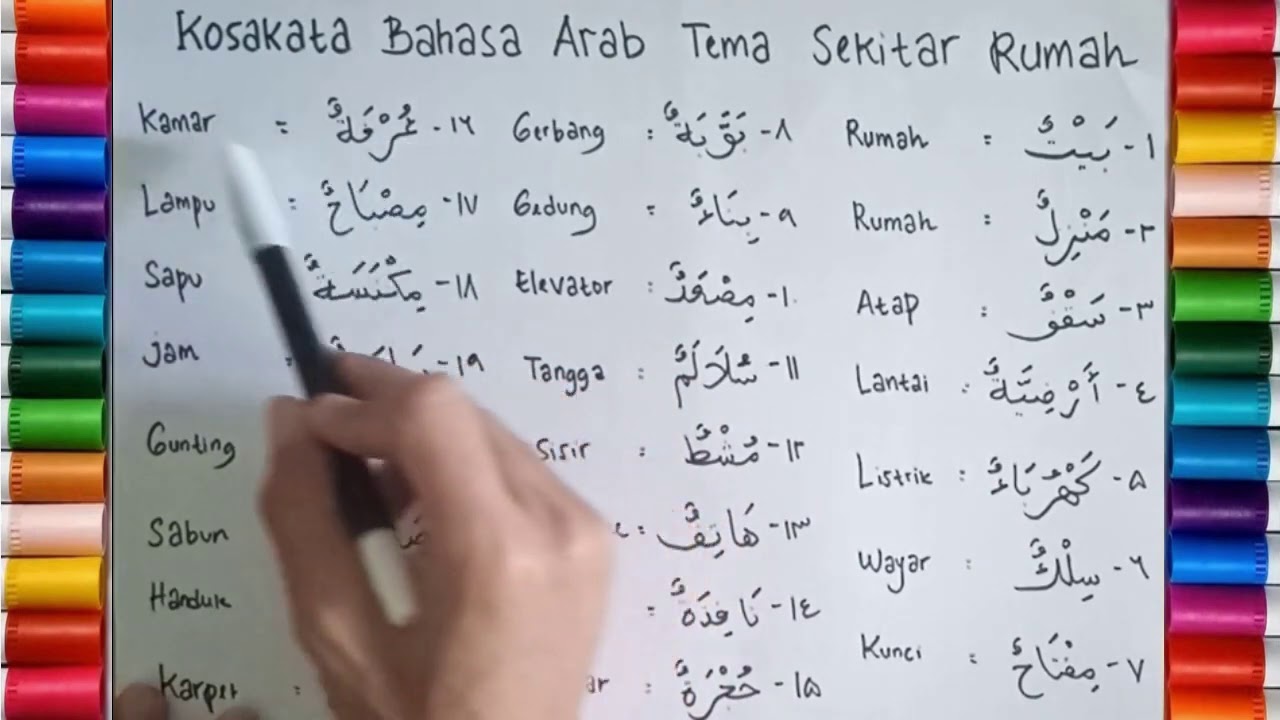 Kosakata Bahasa Arab Tema Sekitar Rumah
١- بَيْتٌ = Rumah
٢- مَنْزِلٌ = Rumah
٣- سَقْفٌ : Atap
٤- أَرْضِيَّةٌ : Lantai
٥- كَهْرُبَاءٌ : Listrik
٦- سِلْكٌ : Wayar
٧- مِفْتَاحٌ = Kunci
٨- بَوَّبَةٌ : Gerbang
٩- بِنَاءٌ = Gedung
١٠- مِصْعَدٌ : Elevator
١١- سُلَالَمٌ : Tangga
١٢- مُشْطٌ : Sisir
١٣- هَاتِفٌ =
١٤- نَافِذَةٌ =
١٥- حُجْرَةٌ :
١٦- غُرْفَةٌ = Kamar
١٧- مِصْبَاحٌ = Lampu
١٨- مِكْنَسَةٌ Sapu
١٩- : Jam
Gunting
Sabun
Handuk
Karpet :